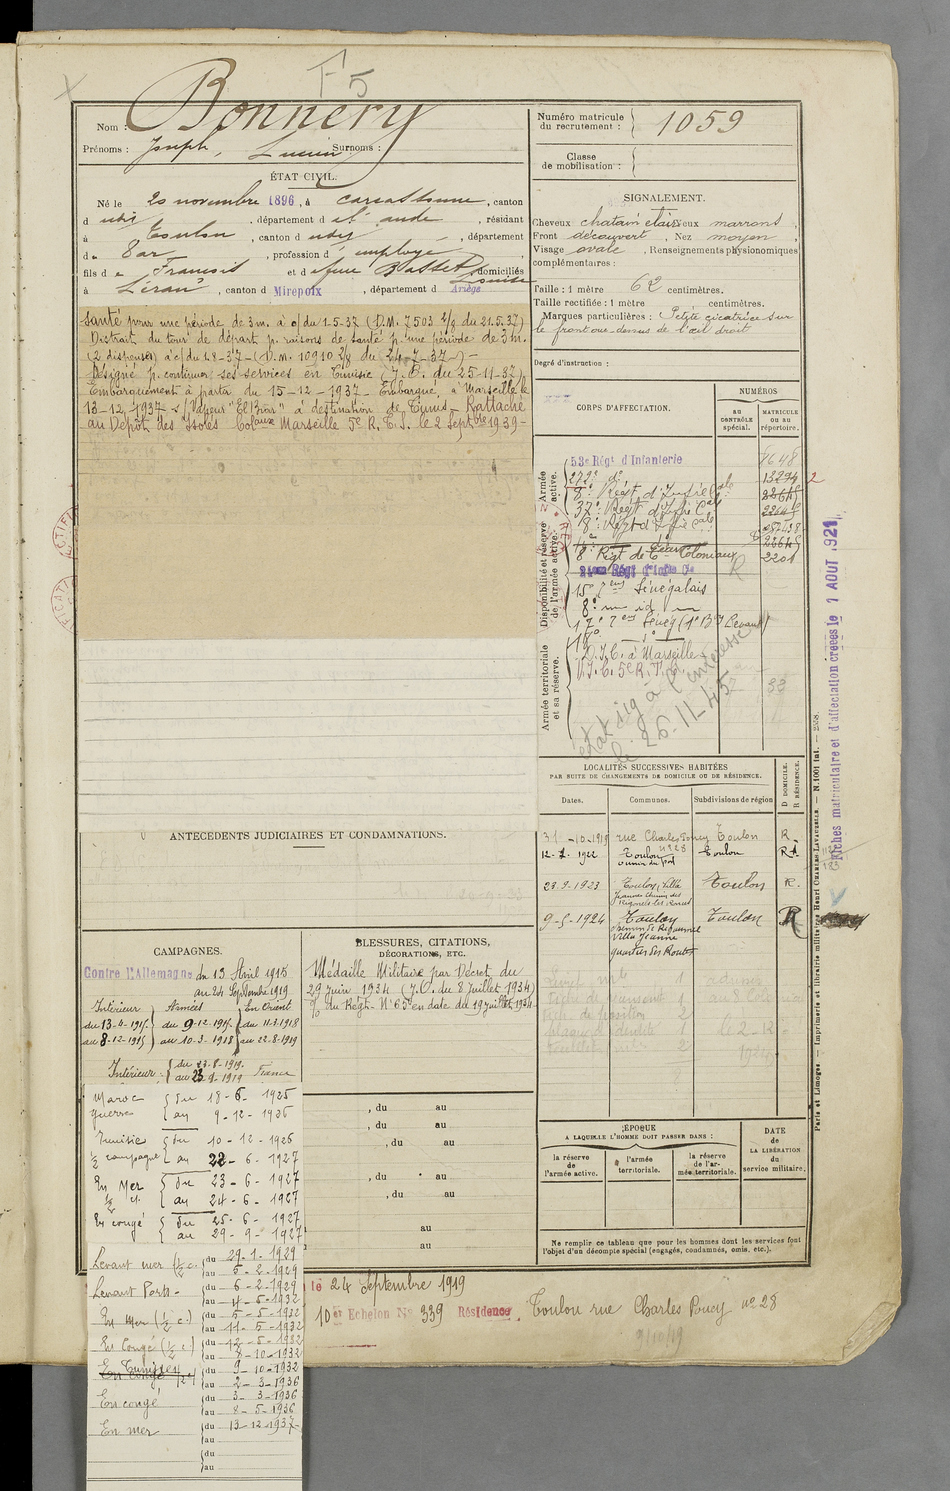 F5
Nom : Bonnery
Prénoms : Joseph, Lucien Surnoms :
Numéro matricule
du recrutement : 1059
Classe
de mobilisation :
ÉTAT CIVIL.
Né le 20 novembre 1896, à Carcassonne, canton
d udit, département d e l'aude, résidant
à Toulon, canton d udit, département
d u Var, profession d' employé
fils d e François et d e feue Basset Louise domiciliés
à Léran, canton d Mirepoix, département d Ariège
SIGNALEMENT.
Cheveux chatain clair Yeux marrons,
Front découvert, Nez moyen,
Visage ovale, Renseignements physionomiques
complémentaires :
Taille : 1 mètre 62 centimètres.
Taille rectifiée : 1 mètre centimètres.
Marques particulières : Petite cicatrice sur
le front au-dessus de l'œil droit
Degré d'instruction :
santé pour une période de 3 m. à c/ du 1-5-37 (D.M. 7503 2/8 du 21.5.37)
Distrait du tour de départ p. raisons de santé p. une période de 3 m.
(2 dispense) à c/ du 1.8-37 - (D.M. 10910 2/8 du 24-7-37 -) -
Désigné p. continuer ses services en Tunisie (J.O. du 25-11-37)
Embarquement à partir du 15-12-1937 - Embarqué, à Marseille le
13-12-1937 s/ Vapeur "El Biar" à destination de Tunis - Rattaché
au Dépôt des Isolés Colaux Marseille 5e R.T.S. le 2 Septbre 1939 -
CORPS D'AFFECTATION.
NUMÉROS
AU
CONTRÔLE
spécial.
MATRICULE
OU au
répertoire.
Armée
active.
Disponibilité et réserve
de l'armée active.
Armée territoriale
et sa réserve.
53e Régt d'Infanterie
272e do
8e Régt d'Infrie Cale
37e Régt d'Infie Cale
8e Regt d'Iffie cale
8e Régt de Coloniaux
2201
21eme Régt d'Infie Cle
15e Sénégalais
8e id
17e Sénég (1er Bon Levant)
D.I.C. à Marseille
D.I.C. 5e R.T.S.
33
état sig à l'intéressé
le 26-11-45
Fiches matriculaire et d'affectation créées le 1 AOUT 1921
LOCALITÉS SUCCESSIVES HABITÉES
PAR SUITE DE CHANGEMENTS DE DOMICILE OU DE RÉSIDENCE.
Dates.
Communes.
Subdivisions de région
D DOMICILE.
R RÉSIDENCE.
31-10-1919 rue Charles Poncy Toulon R.
no 28
12-1-1922 Toulon Toulon R
chemin du fort
23.2.1923 Toulon, Villa Toulon R.
Jeanne chemin des
9-5-1924 Toulon Toulon R
Villa Jeanne
quartier des Routes
ANTÉCÉDENTS JUDICIAIRES ET CONDAMNATIONS.
CAMPAGNES.
Contre l'Allemagne du 13 Avril 1915
au 24 Septembre 1919
Intérieur Armées En Orient
du 13-4-1915 du 9-12-1915 du 11-3-1918
au 8-12-1915 au 10-3-1918 au 22-8-1919
Intérieur : du 23-8-1919 France
au 23-9-1919
Maroc du 18-6-1925
guerre au 9-12-1926
Tunisie du 10-12-1926
1/2 campagne au 22-6-1927
En Mer du 23-6-1927
1/2 c. au 24-6-1927
En congé du 25-6-1927
au 29-9-1927
Levant mer (1/2 c. du 29-1-1929
au 5-2-1929
Levant Port - du 6-2-1929
au 4-5-1932
En Mer (1/2 c.) du 5-5-1932
au 11-5-1932
En Congé (1/2 c.) du 12-5-1932
au 8-10-1932
En Tunisie du 9-10-1932
au 2-3-1936
En congé du 3-3-1936
au 8-5-1936
En mer du 13-12-1937-
au
du
au
BLESSURES, CITATIONS,
DÉCORATIONS, ETC.
Médaille Militaire par Décret du
29 juin 1934 (J.O. du 8 Juillet 1934)
O/ du Régt. N° 65 en date du 19 juillet 1934
, du au
, du au
, du au
, du au
, du au
au
au
ÉPOQUE
A LAQUELLE L'HOMME DOIT PASSER DANS :
la réserve
de
l'armée active.
l'armée
territoriale.
la réserve
de l'ar-
mée territoriale.
DATE
de
LA LIBÉRATION
du
service militaire.
Ne remplir ce tableau que pour les hommes dont les services font
l'objet d'un décompte spécial (engagés, condamnés, omis, etc.).
le 24 Septembre 1919
10 er Echelon No 339 Résidence Toulon rue Charles Poncy no 28
9/10/19
Paris et Limoges. — Imprimerie et librairie militaires Henri CHARLES-LAVAUZELLE. — N. 1001 int. — 2558.